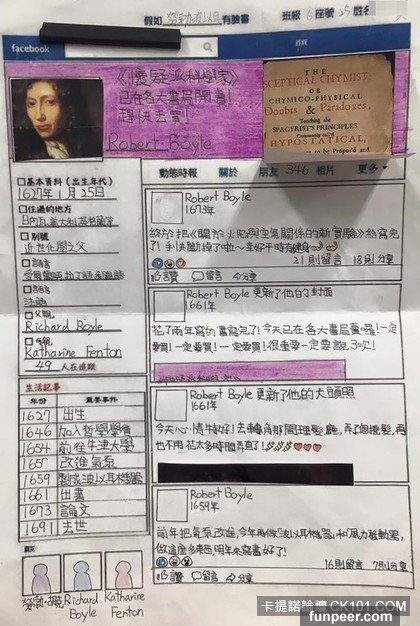 假如 勞勃波以耳 有臉書 班級 6 座號 25 姓名
facebook 首頁
《懷疑派科學家》
已在各大書局開賣!
趕快去買!
Robert Boyle
THE
SCEPTICAL CHYMIST:
OR
CHYMICO-PHYSICAL
Doubts & Paradoxes,
Touching the
SPAGYRIST'S PRINCIPLES
Commonly call'd
HYPOSTATICAL,
to be Propos'd and
動態時報 關於 朋友 346 相片 更多
基本資料(出生年代)
1627年1月25日
住過的地方
別號
近世化學之父
語言
法語
父親
Richard Boyle
母親
Katharine Fenton
49 人在追蹤
生活記事
年份 重要事件
1627 出生
1646 加入哲學學會
1654 前往牛津大學
1657 改進氣泵
1659 製成波以耳機器
1661 出書
1673 論文
1691 去世
朋友
勞勃·胡克 Richard Boyle Katharine Fenton
Robert Boyle
1673年
終於把《關於火焰與空氣關係的新實驗》給寫完
了!手快斷掉了啦~幸好平時有健身
21則留言 18則分享
讚 留言 分享
Robert Boyle 更新了他的封面
1661年
花了兩年寫的書寫完了!今天已在各大書局賣囉!一定
要買!一定要買!一定要買!很重要一定要說3次!
Robert Boyle 更新了他的大頭照
1661年
今天心情特好!去轉角那間理髮廳,弄了個捲髮,再
也不用花太多時間弄直了!
Robert Boyle
1659年
前年把氣泵改進,今年再做波以耳機器和風力發動器,
做這麼多東西,明年來寫書好了!
16則留言 7則分享
讚 留言 分享
卡提諾論壇 CK101.COM
funpeer.com